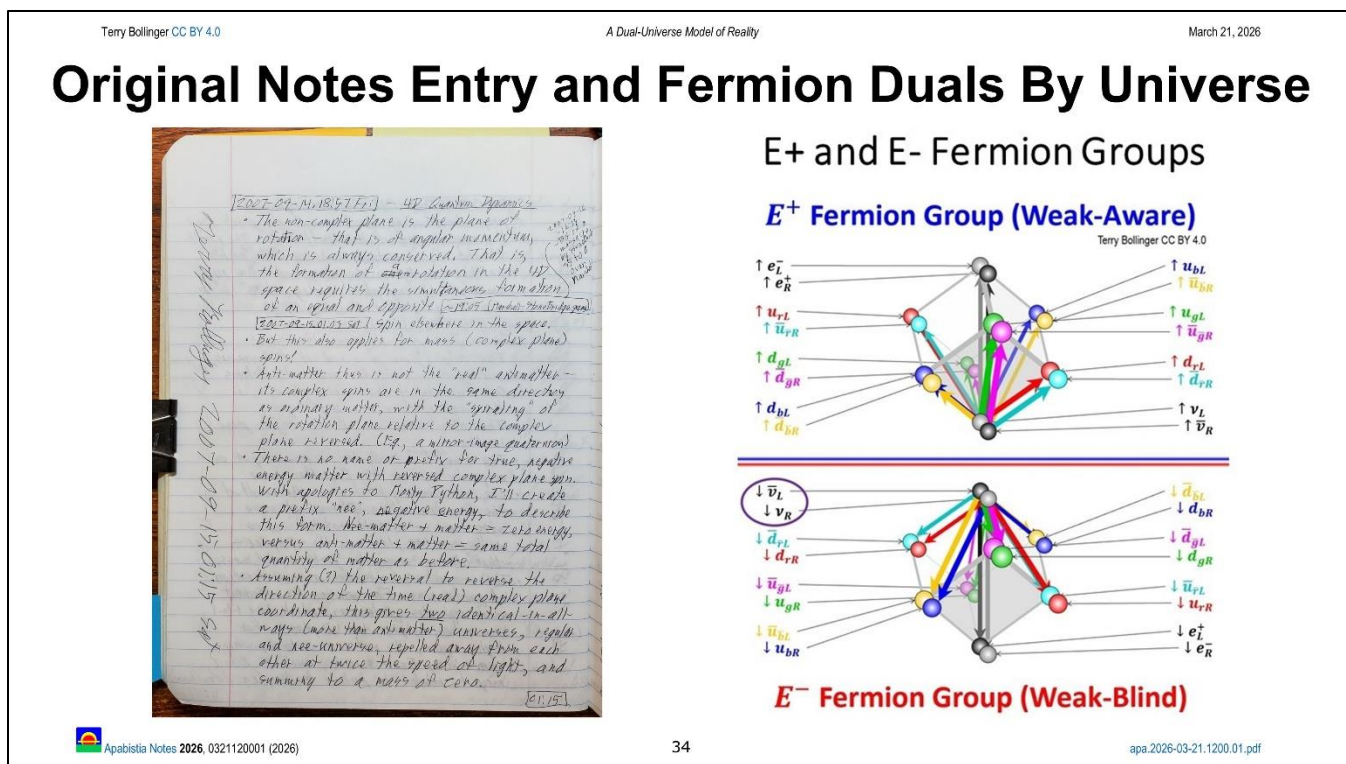 Terry Bollinger CC BY 4.0
A Dual-Universe Model of Reality
March 21, 2026
Original Notes Entry and Fermion Duals By Universe
2007-09-14.18:57 Fri - 4D Quantum Dynamics
• The non-complex plane is the plane of
rotation - that is of angular momentum,
which is always conserved. That is,
the formation of rotation in the 4D
space requires the simultaneous formation
of an equal and opposite
2007-09-15.01:03 Sat spin elsewhere in the space.
• But this also applies for mass (complex plane)
spins!
• Anti-matter thus is not the "real" antimatter -
its complex spins are in the same direction
as ordinary matter, with the "spiraling" of
the rotation plane relative to the complex
plane reversed. (Eg, a mirror-image quaternion)
• There is no name or prefix for true, negative
energy matter with reversed complex plane spin.
With apologies to Monty Python, I'll create
a prefix "nee", negative energy, to describe
this form. Nee-matter + matter = zero energy,
versus anti-matter + matter = same total
quantity of matter as before.
• Assuming (?) the reversal to reverse the
direction of the time (real) complex plane
coordinate, this gives two identical-in-all-
ways (more than antimatter) universes, regular
and nee-universe, repelled away from each
other at twice the speed of light, and
summing to a mass of zero.
01:15
Terry Bollinger 2007-09-15.01:15 Sat
E+ and E- Fermion Groups
E⁺ Fermion Group (Weak-Aware)
Terry Bollinger CC BY 4.0
↑ e⁻L
↑ e⁺R
↑ u_rL
↑ u̅_r̅R
↑ d_gL
↑ d̅_g̅R
↑ d_bL
↑ d̅_b̅R
↑ u_bL
↑ u̅_b̅R
↑ u_gL
↑ u̅_g̅R
↑ d_rL
↑ d̅_r̅R
↑ ν_L
↑ ν̅_R
↓ ν̅_L
↓ ν_R
↓ d̅_r̅L
↓ d_rR
↓ u̅_g̅L
↓ u_gR
↓ u̅_b̅L
↓ u_bR
↓ d̅_b̅L
↓ d_bR
↓ d̅_g̅L
↓ d_gR
↓ u̅_r̅L
↓ u_rR
↓ e⁺L
↓ e⁻R
E⁻ Fermion Group (Weak-Blind)
Apabistia Notes 2026, 0321120001 (2026)
34
apa.2026-03-21.1200.01.pdf